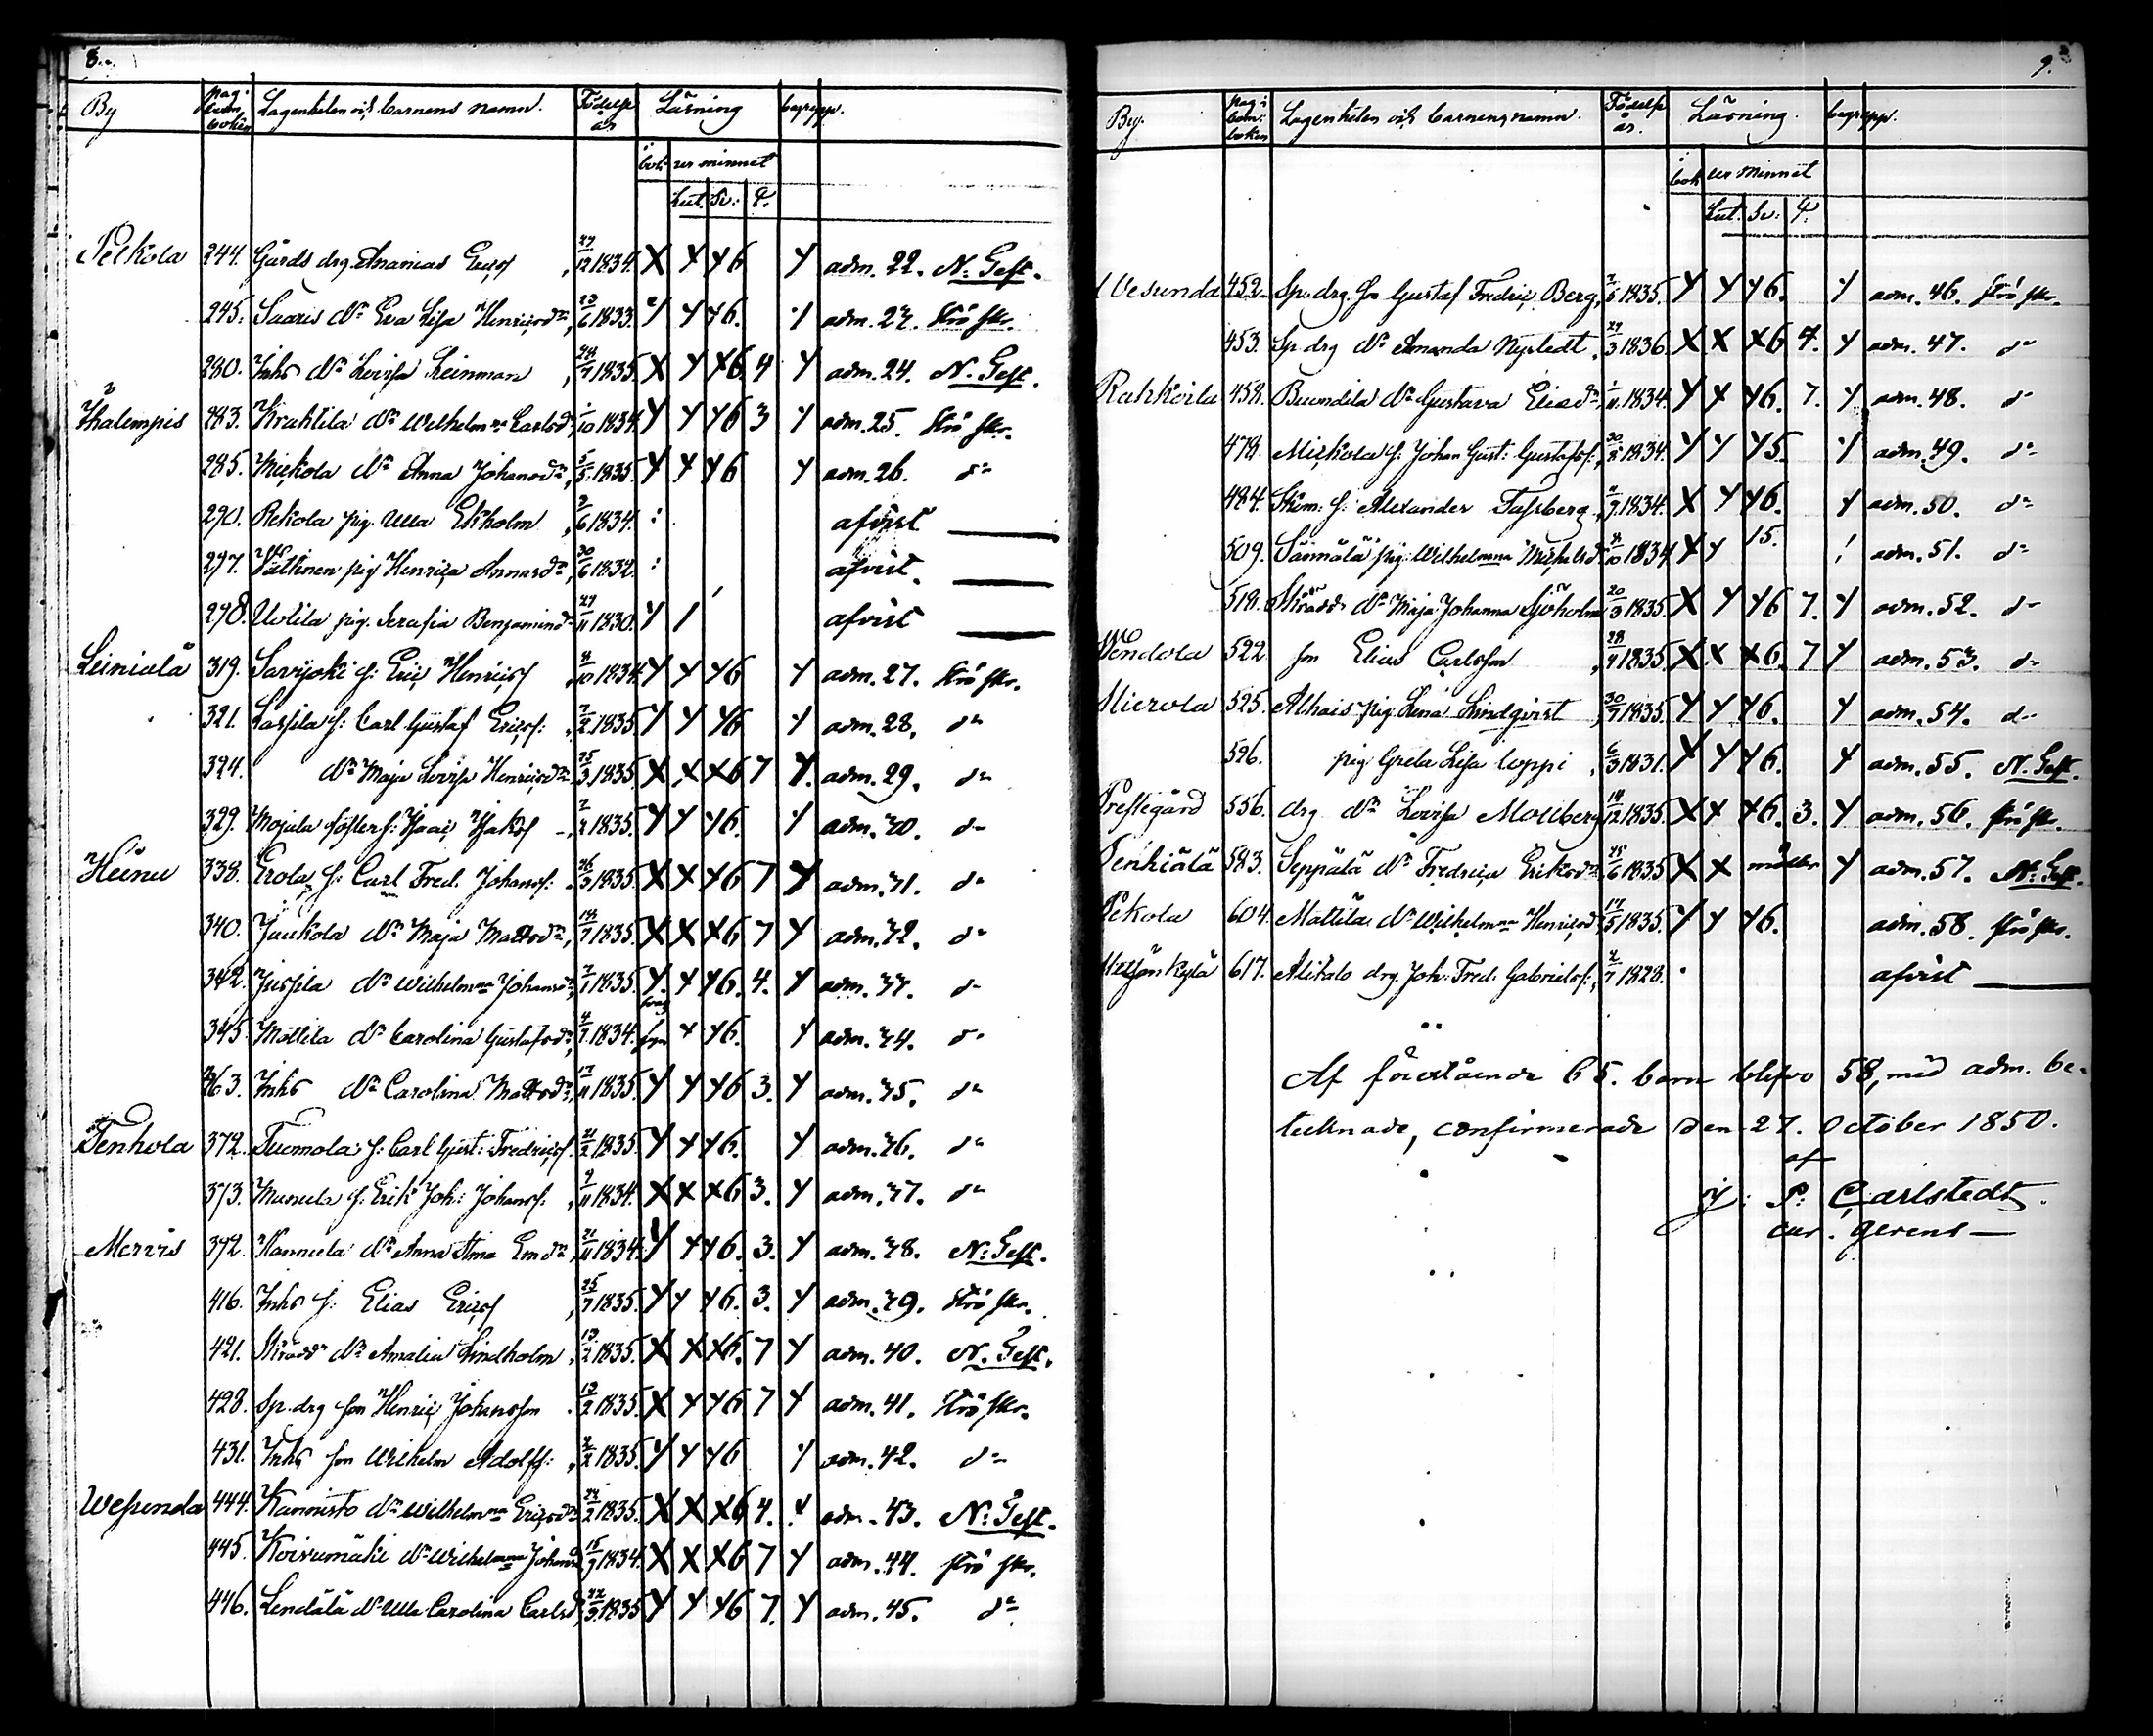 8.
By pag: i Com. boken Lägenheten och barnens namn. Födelse år Läsning begrepp.
i bok ur minnet
Lut. Sv: F.
Pelkola 244. Gårds drg. Ananias Ericss 1834. X Y Y6 Y adm. 22. N. Test.
245. Saaris dr Eva Lisa Henricsdr 23/6 1833. Y Y6. Y adm. 23. Skrö skr.
280. Inhs dr Lovisa Leinman 1835. X Y X6 4 Y adm. 24. N. Test.
Ihalempis 283. Krahtila dr Wilhelmna Carlsdr 1/10 1834. Y Y Y6 3 Y adm. 25. Skrö skr.
285. Mickola dr Anna Johansdr 5/5 1835. Y Y Y6 Y adm. 26. do
290. Rekola pig. Ulla Ekholm 1834. afvist
297. pig Henrica Annasdr 30/6 1832. afvist
298. Uotila pig. Serafia Benjaminsdr 1830. Y / afvist
Leiniälä 319. Savijoki s: Eric Henricss 1834. Y Y Y6 Y adm. 27. Skrö skr.
321. Lassila s: Carl Gustaf Ericss: 1835. Y Y Y6 Y adm. 28. do
324. dr Maja Lovisa Henricsdr 25/3 1835. X X X6 7 Y. adm. 29. do
329. Mojula foster s: Isaac Isakss 1835. Y Y Y6. Y adm. 30. do
Heinu 338. Erola s: Carl Fred. Johanss: 1835. X X Y6 7 Y adm. 31. do
340. Juckola dr Maja Mattsdr 1835. X X X6 7 Y adm. 32. do
342. Jussila dr Wilhelmna Johansdr 1835. Y. Y Y6. 4. Y adm. 33. do
345. Mattila dr Carolina Gustafsdr 1834. Y Y6. Y adm. 34. do
363. Inhs dr Carolina Mattsdr 1835. Y Y Y6 3. Y adm. 35. do
Tenhola 372. Tuomola s: Carl Gust: Fredricss. 1835. Y Y Y6. Y adm. 36. do
373. Manula s: Erik Joh: Johanss. 1834. X X X6 3. Y adm. 37. do
Mervis 392. Hannula dr Anna Stina Emdr 21/11 1834. Y Y Y6. 3. Y adm. 38. N. Test.
416. Inhs s: Elias Ericss 25/7 1835. Y Y Y6. 3. Y adm. 39. Skrö skr.
421. Skrädd dr Amalia Lindholm 13/2 1835. X X X6. 7 Y adm. 40. N. Test.
428. Sp. drg son Henric Johansson 13/2 1835. X Y Y6 7 Y adm. 41. Skrö skr.
431. Inhs son Wilhelm Adolfss: 1835. Y Y Y6 Y adm. 42. do
Wesunda 444. Kannisto dr Wilhelmna Ericsdr 1835. X X X6 4. Y adm. 43. N. Test.
445. Koivumäki dr Wilhelmna Johansdr 1834. X X X6 7 Y adm. 44. Skrö skr.
446. Lendälä dr Ulla Carolina Carlsdr 1835 Y Y Y6 7. Y adm. 45. do
9.
By. pag: i Com: boken Lägenheten och barnens namn. Födelse år. Läsning. begrepp.
i bok ur minnet
Lut. Sv: F.
Wesunda 452. Sp. drg. son Gustaf Fredric Berg 1835. Y Y Y6. Y adm. 46. Skrö skr.
453. Sp. drg dr Amanda Nystedt 1836. X X X6 7. Y adm. 47. do
Rahkoila 458. dr Gustava Eliasdr 1/11 1834. Y Y Y6. 7. Y adm. 48. do
478. Mickola s: Johan Gust: Gustafss: 1834. Y Y Y5. Y adm. 49. do
484. s: Alexander Tassberg 1834. X Y Y6. Y adm. 50. do
509. Sännälä pig: Wilhelmna Michelsdr 1834 X Y 15. / adm. 51. do
518. Skrädd dr Maja Johanna Sjöholm 20/3 1835. X Y Y6 7. Y adm. 52. do
Wendola 522. son Elias Carlsson 1835. X X X6. 7 Y adm. 53. do
Mierola 525. Alhais pig. Lena Lindqvist 30/7 1835. Y Y Y6. Y adm. 54. do
526. pig Greta Lisa Loppi 6/3 1831. Y Y Y6. Y adm. 55. N. Test.
Prestegård 556. drg dr Lovisa Mollberg 14/12 1835. X Y Y6. 3. Y adm. 56. Skrö skr.
Tenhiälä 583. Seppälä dr Fredrica Eriksdr 1835 X X Y adm. 57. N. Test.
Pekola 604. Mattila dr Wilhelmna Henricsdr 1835. Y Y Y6. adm. 58. Skrö skr.
Metsänkylä 617. Alitalo drg. Joh: Fred. Gabrielss: 1828. afvist
Af förestående 65. barn blefvo 58, med adm. be-
tecknade, confirmerade den 27. October 1850.
af
P. Carlstedt.
cur. gerens